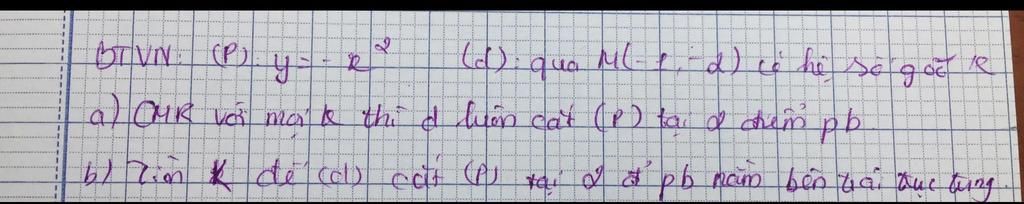 BTVN: (P): y = - x² (d): qua M(-1, -2) có hệ số góc k
a) CMR với mọi k thì d luôn cắt (P) tại 2 điểm pb
b) Tìm k để (d) cắt (P) tại 2 đ pb nằm bên trái trục tung.